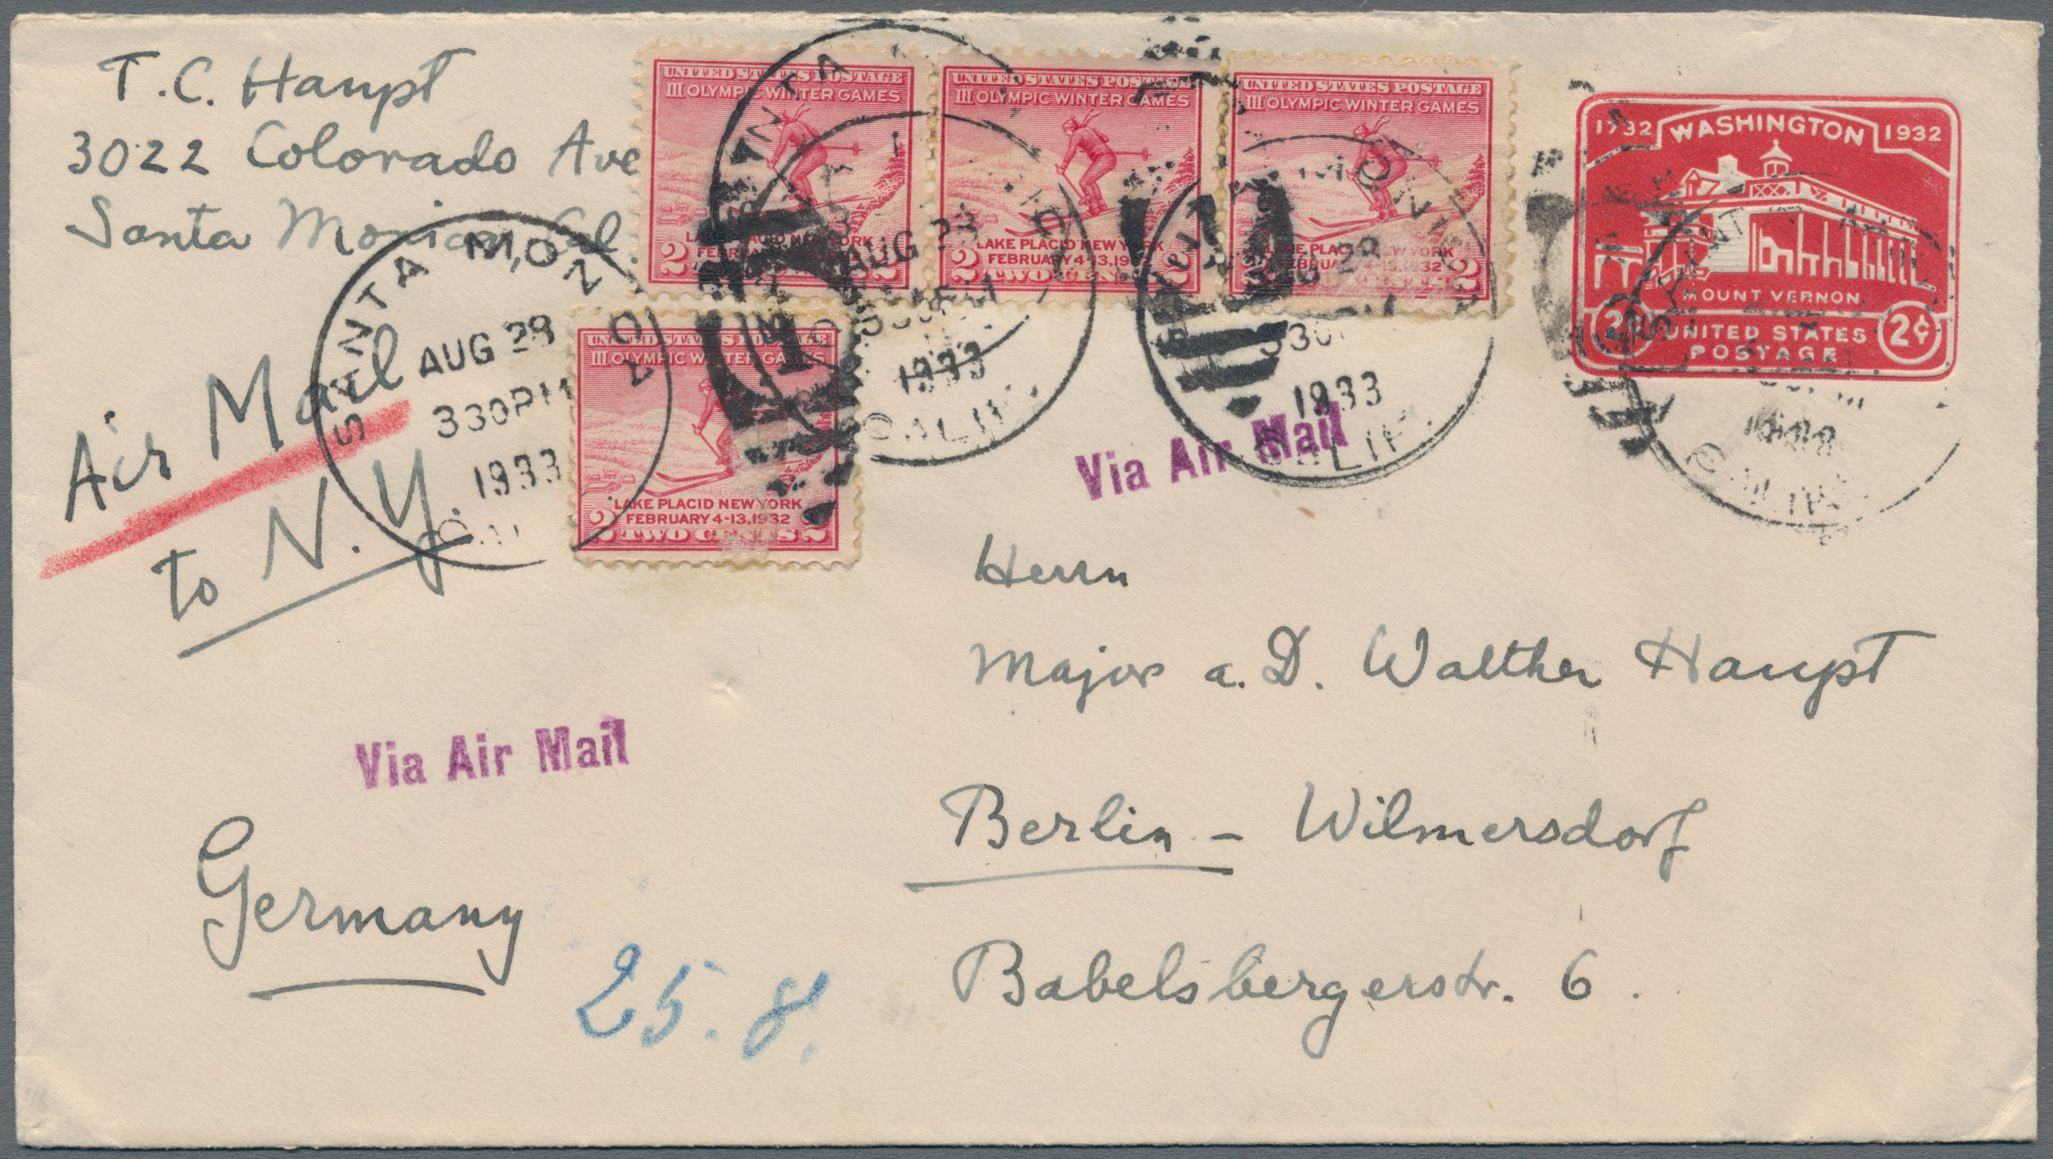 T.C. Haupt
3022 Colorado Ave
Santa Monica Cal
UNITED STATES POSTAGE
III OLYMPIC WINTER GAMES
2 LAKE PLACID NEW YORK
FEBRUARY 4-13, 1932
UNITED STATES POSTAGE
III OLYMPIC WINTER GAMES
LAKE PLACID NEW YORK
FEBRUARY 4-13, 1932
2 TWO CENTS
UNITED STATES POSTAGE
III OLYMPIC WINTER GAMES
LAKE PLACID NEW YORK
FEBRUARY 4-13, 1932
2 2
1732 WASHINGTON 1932
MOUNT VERNON
2¢ UNITED STATES 2¢
POSTAGE
UNITED STATES POSTAGE
III OLYMPIC WINTER GAMES
LAKE PLACID NEW YORK
FEBRUARY 4-13, 1932
2 TWO CENTS 2
SANTA MONICA
AUG 28
330PM
1933
CALIF.
SANTA
AUG 28
330PM
1933
CALIF.
SANTA MONICA
AUG 28
330PM
1933
CALIF.
CALIF.
Air Mail
to N.Y.
Via Air Mail
Via Air Mail
Herrn
Major a. D. Walther Haupt
Berlin - Wilmersdorf
Babelsbergerstr. 6.
Germany
25. 8.